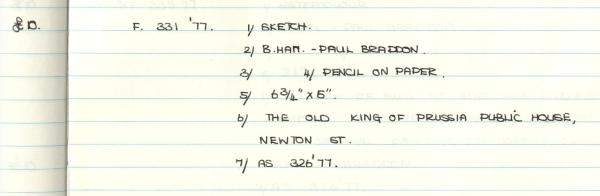 £D. F. 331 '77. 1/ SKETCH.
2/ B.HAM. - PAUL BRADDON.
3/ 4/ PENCIL ON PAPER.
5/ 6 3/4" x 5".
6/ THE OLD KING OF PRUSSIA PUBLIC HOUSE,
NEWTON ST.
7/ AS 326'77.